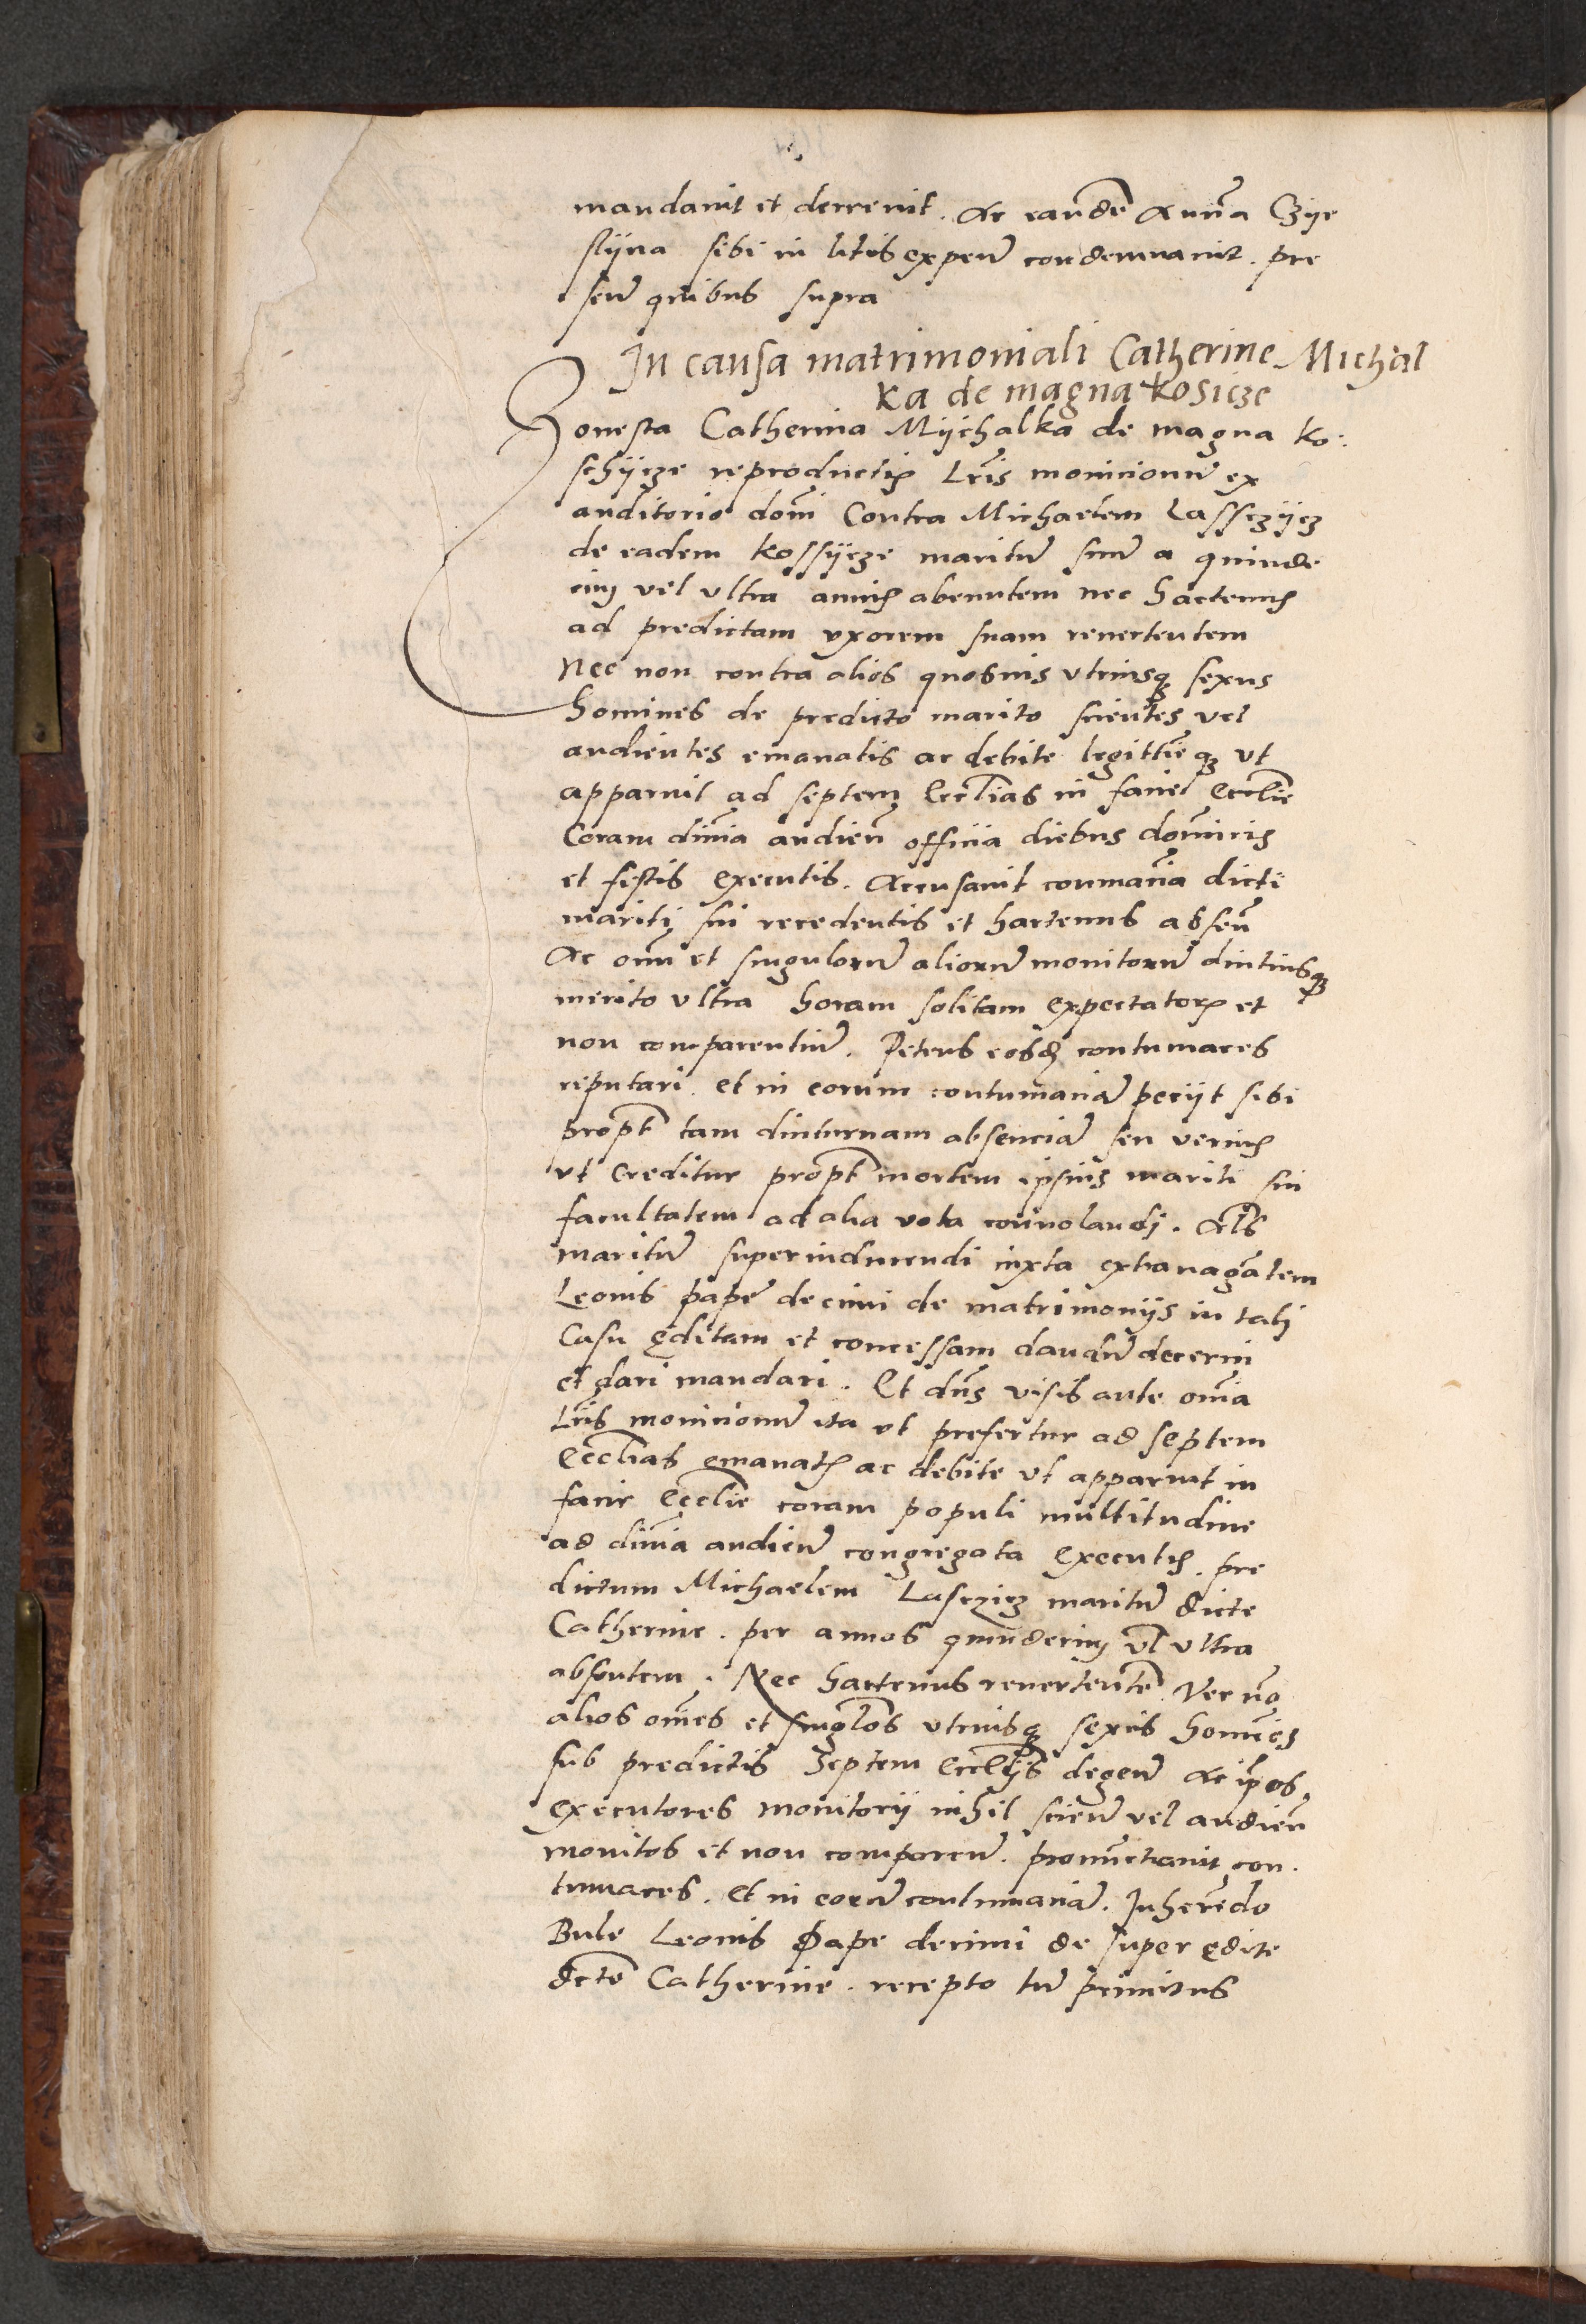 mandavit et decrevit. Ac eandē Annā Czije
stijna sibi in litis expeñ condemnavit. pre
señ quibus supra
In causa matrimoniali Catherine Michal
ka de magna Kosicze
Honesta Catherina Mijchalka de magna Ko:
schijcze reproductis Lr̄is monicionū ex
auditorio domī Contra Michaelem Lassczijcz
de eadem Kossijcze maritū suū a quinde
cim vel ultra annis abenntem nec hactenus
ad predictam uxorem suam revertentem
Nec non contra alios quosvis utriusqȝ sexus
homines de predicto marito scientes vel
audientes emanatis ac debite legittīeqȝ ut
apparuit ad septem Ecc̄lias in facie Ecc̄lie
Coram divīa audieñ officia diebus domīcis
et festis executis. Accusavit coñmaciā dicti
mariti sui recedentis et hactenus abseñ
Ac om̄ et singulorū aliorū monitorū diutiusqȝ
merito ultra horam solitam expectatoꝝ et
non comparentiū. Petens eosdꝫ contumaces
reputari. et in eorum contumaciā peciit sibi
propt̄ tam diuturnam absenciā seu verius
ut creditur propt̄ mortem ipsius mariti sui
facultatem ad alia vota convolandi. Al̄s
maritū superinducendi iuxta extravagātem
Leonis pape decimi de matrimonijs in tali
Casu editam et concessam dandū decerni
et dari mandari. Et dn̄s visis ante om̄ia
Lr̄is monicionū ita ut prefertur ad septem
Ecc̄lias emanatis ac debite ut apparuit in
facie Ecc̄lie coram populi multitudine
ad divīa audieñ congregata executis. pre
dictum Michaelem Lasczicz maritū dicte
Catherine. per annos quindecim vl̄ ultra
absentem. Nec hactenus revertentē Nec nō
alios om̄es et singl̄os utriusqȝ sexus homīes
sub predictis Septem Ecc̄lijs degeñ Ac ip̄os
executores monitorij nihil scieñ vel audieñ
monitos et non compareñ. pronūctiavit con.
tumaces. et in eorū contumaciā. Inherēdo
Bule Leonis Pape decimi de super edite
dc̄te Catherine. recepto tn̄ primitus